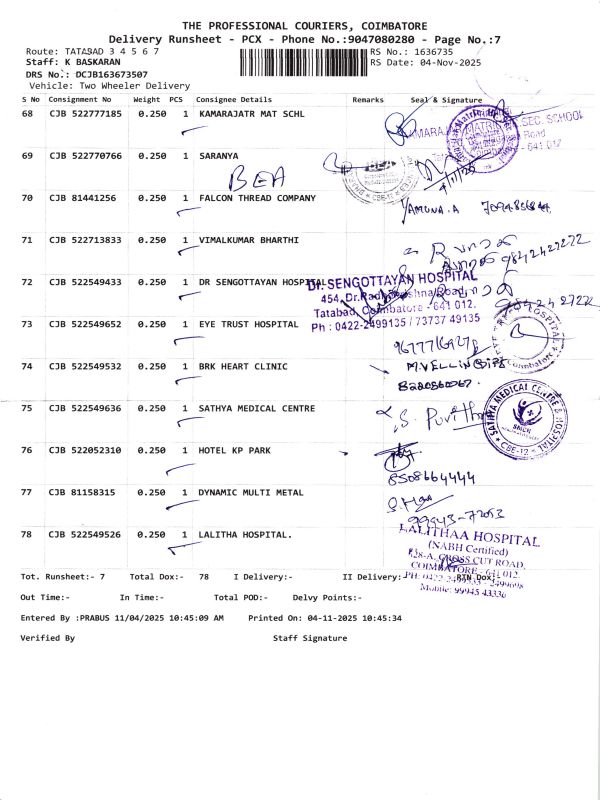 THE PROFESSIONAL COURIERS, COIMBATORE
Delivery Runsheet - PCX - Phone No.:9047080280 - Page No.:7
Route: TATABAD 3 4 5 6 7 RS No.: 1636735
Staff: K BASKARAN RS Date: 04-Nov-2025
DRS No.: DCJB163673507
Vehicle: Two Wheeler Delivery
S No Consignment No Weight PCS Consignee Details Remarks Seal & Signature
68 CJB 522777185 0.250 1 KAMARAJATR MAT SCHL
SEC. SCHOOL
Road
- 641 012
69 CJB 522770766 0.250 1 SARANYA
BEA
70 CJB 81441256 0.250 1 FALCON THREAD COMPANY
YAMUNA.A
71 CJB 522713833 0.250 1 VIMALKUMAR BHARTHI
9842422222
72 CJB 522549433 0.250 1 DR SENGOTTAYAN HOSPITAL
Dr. SENGOTTAYAN HOSPITAL
454, Dr. Radhakrishna Road,
Tatabad, Coimbatore - 641 012.
Ph : 0422-2499135 / 73737 49135
73 CJB 522549652 0.250 1 EYE TRUST HOSPITAL
74 CJB 522549532 0.250 1 BRK HEART CLINIC
M.VELLINGIRI
8220860267.
75 CJB 522549636 0.250 1 SATHYA MEDICAL CENTRE
S. Pavithra
SATHYA MEDICAL CENTRE & HOSPITAL
SMCH
CBE-12
76 CJB 522052310 0.250 1 HOTEL KP PARK
8508664444
77 CJB 81158315 0.250 1 DYNAMIC MULTI METAL
99943-72053
78 CJB 522549526 0.250 1 LALITHA HOSPITAL.
LALITHAA HOSPITAL
(NABH Certified)
CROSS CUT ROAD,
COIMBATORE - 641 012.
Mobile: 99945 43336
Tot. Runsheet:- 7 Total Dox:- 78 I Delivery:- II Delivery:- RTN Dox:-
Out Time:- In Time:- Total POD:- Delvy Points:-
Entered By :PRABUS 11/04/2025 10:45:09 AM Printed On: 04-11-2025 10:45:34
Verified By Staff Signature